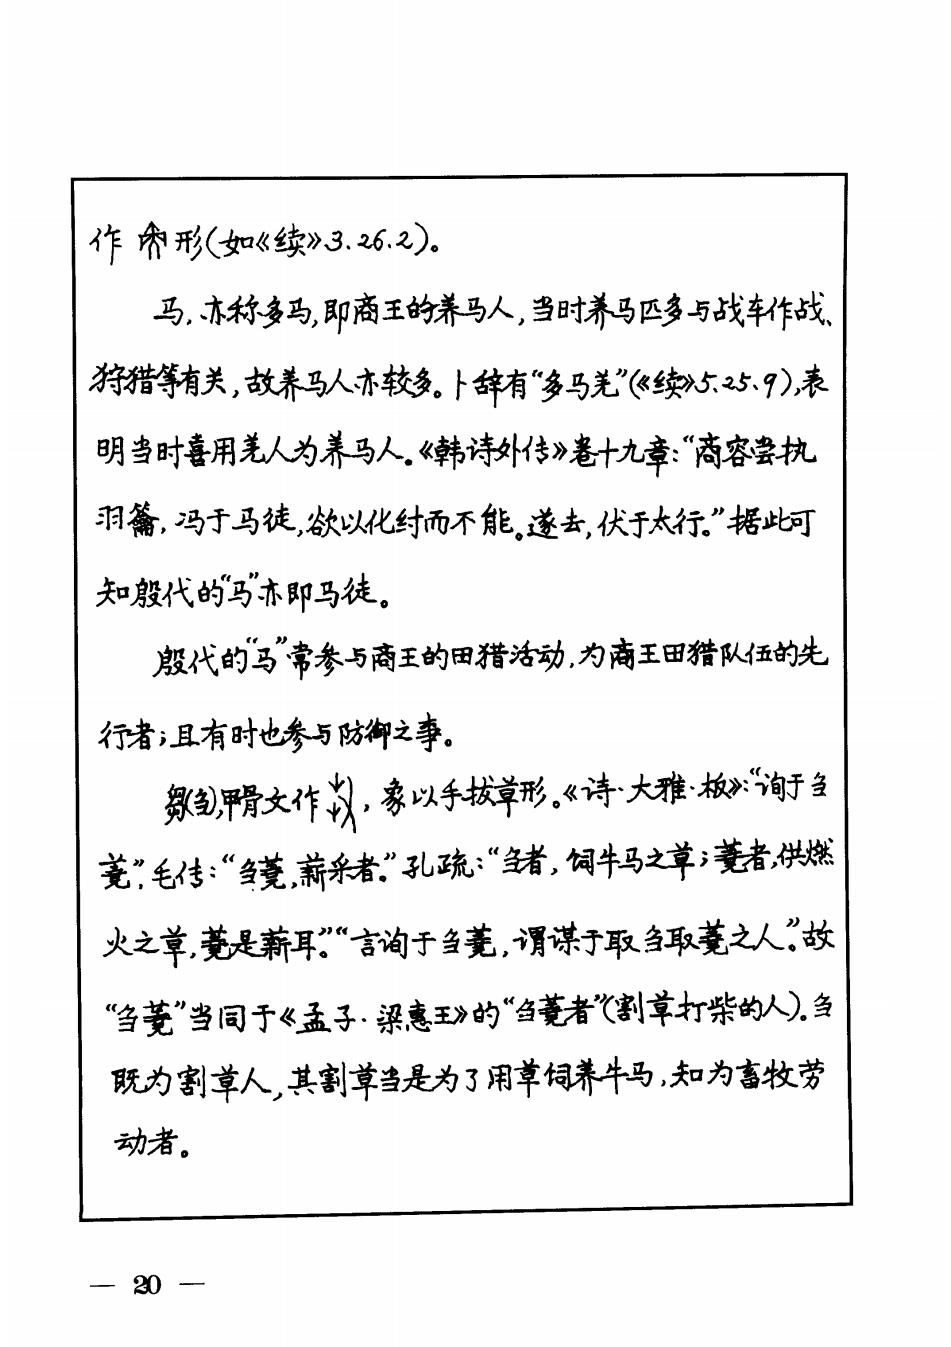 作 形(如《续》3.26.2)。
马,亦称多马,即商王的养马人,当时养马匹多与战车作战、
狩猎等有关,故养马人亦较多。卜辞有“多马羌”(《续》5.25.9),表
明当时喜用羌人为养马人。《韩诗外传》卷十九章:“商容尝执
羽籥,冯于马徒,欲以化纣而不能。遂去,伏于太行。”据此可
知殷代的“马”亦即马徒。
殷代的“马”常参与商王的田猎活动,为商王田猎队伍的先
行者;且有时也参与防御之事。
芻(刍),甲骨文作 ,象以手拔草形。《诗·大雅·板》:“询于刍
荛”,毛传:“刍荛,薪采者。”孔疏:“刍者,饲牛马之草;荛者,供燃
火之草,荛是薪耳。”“言询于刍荛,谓谋于取刍取荛之人。”故
“刍荛”当同于《孟子·梁惠王》的“刍荛者”(割草打柴的人)。刍
既为割草人,其割草当是为了用草饲养牛马,知为畜牧劳
动者。
— 20 —